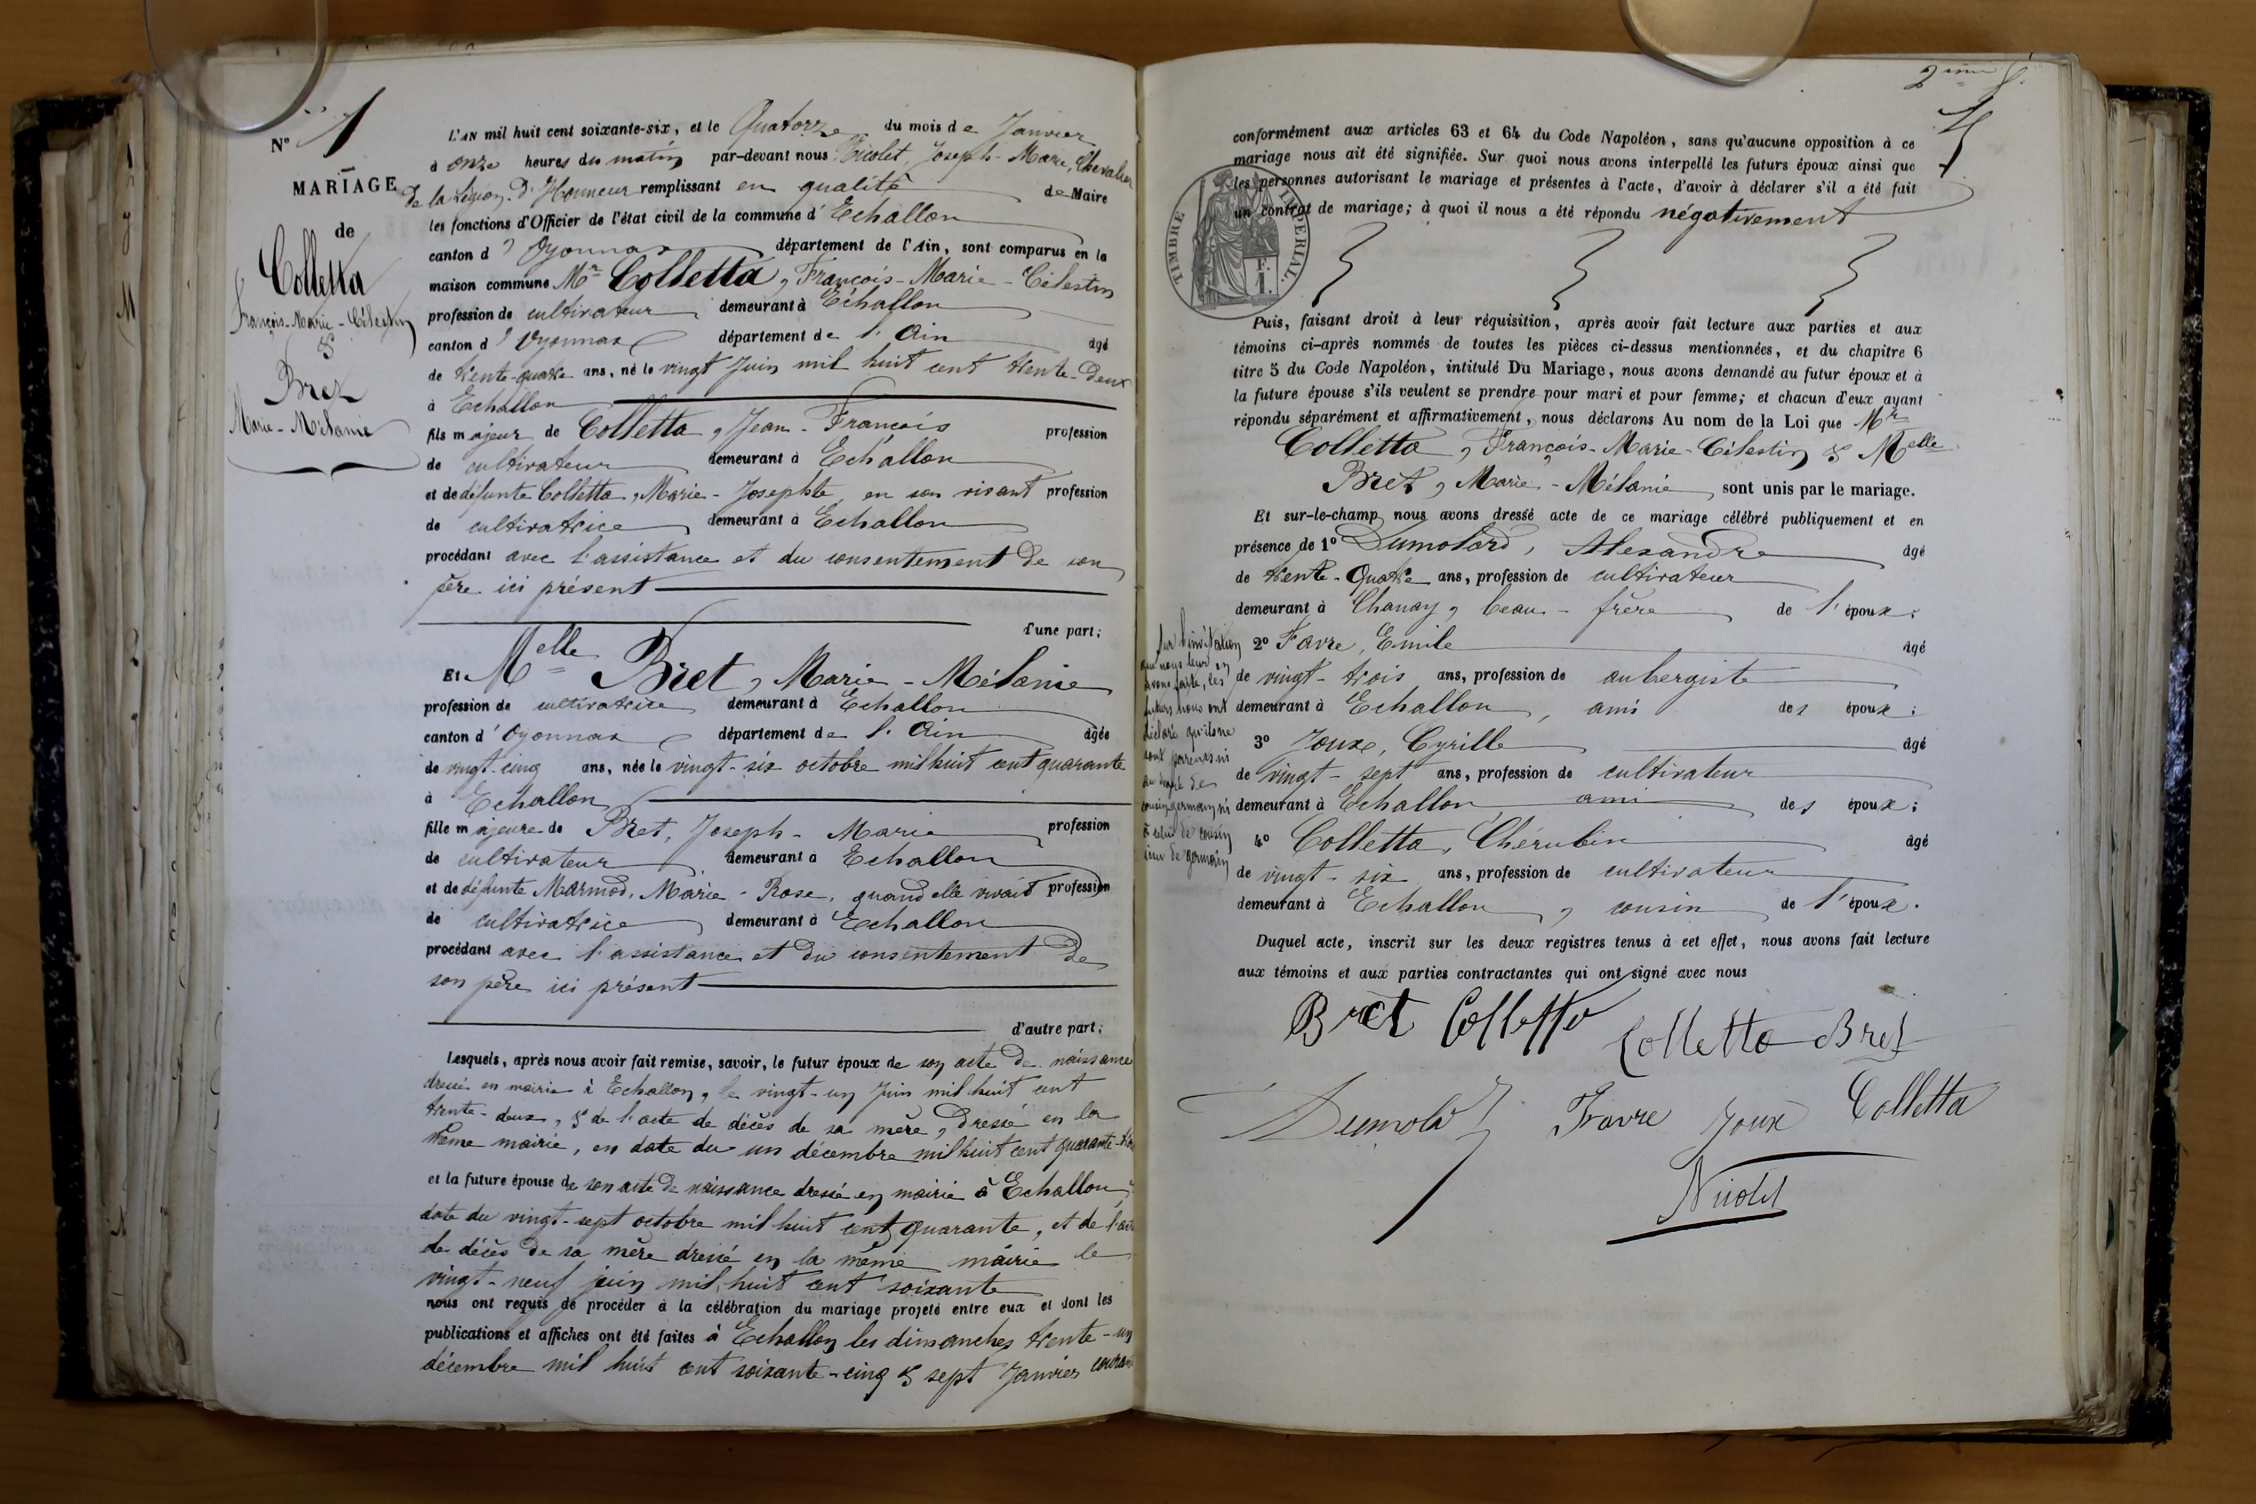 N° 1
MARIAGE
de
Colletta
François-Marie-Célestin
&
Bret
Marie-Mélanie
L'AN mil huit cent soixante-six, et le Quatorze du mois de Janvier
à onze heures du matin par-devant nous Nicolet, Joseph-Marie, Chevalier
de la Légion d'Honneur remplissant en qualité de Maire
les fonctions d'Officier de l'état civil de la commune d'Echallon
canton d'Oyonnax département de l'Ain, sont comparus en la
maison commune Mr Colletta, François-Marie-Célestin
profession de cultivateur demeurant à Echallon
canton d'Oyonnax département de l'Ain âgé
de trente-quatre ans, né le vingt Juin mil huit cent trente-deux
à Echallon
fils majeur de Colletta, Jean-François profession
de cultivateur demeurant à Echallon
et de défunte Colletta, Marie-Josephte, en son vivant profession
de cultivatrice demeurant à Echallon
procédant avec l'assistance et du consentement de son
père ici présent
d'une part;
Et Melle Bret, Marie-Mélanie
profession de cultivatrice demeurant à Echallon
canton d'Oyonnax département de l'Ain âgée
de vingt-cinq ans, née le vingt-six octobre mil huit cent quarante
à Echallon
fille majeure de Bret, Joseph-Marie profession
de cultivateur demeurant à Echallon
et de défunte Marmod, Marie-Rose, quand elle vivait profession
de cultivatrice demeurant à Echallon
procédant avec l'assistance et du consentement de
son père ici présent
d'autre part;
Lesquels, après nous avoir fait remise, savoir, le futur époux de son acte de naissance
dressé en mairie à Echallon, le vingt-un Juin mil huit cent
trente-deux, & de l'acte de décès de sa mère, dressé en la
même mairie, en date du un décembre mil huit cent quarante
et la future épouse de son acte de naissance dressé en mairie à Echallon,
date du vingt-sept octobre mil huit cent quarante, et de l'acte
de décès de sa mère dressé en la même mairie le
vingt-neuf juin mil huit cent soixante
nous ont requis de procéder à la célébration du mariage projeté entre eux et dont les
publications et affiches ont été faites à Echallon les dimanches trente-un
décembre mil huit cent soixante-cinq & sept Janvier courant
2ème f.
conformément aux articles 63 et 64 du Code Napoléon, sans qu'aucune opposition à ce
mariage nous ait été signifiée. Sur quoi nous avons interpellé les futurs époux ainsi que
les personnes autorisant le mariage et présentes à l'acte, d'avoir à déclarer s'il a été fait
un contrat de mariage; à quoi il nous a été répondu négativement
TIMBRE IMPÉRIAL.
Puis, faisant droit à leur réquisition, après avoir fait lecture aux parties et aux
témoins ci-après nommés de toutes les pièces ci-dessus mentionnées, et du chapitre 6
titre 5 du Code Napoléon, intitulé Du Mariage, nous avons demandé au futur époux et à
la future épouse s'ils veulent se prendre pour mari et pour femme; et chacun d'eux ayant
répondu séparément et affirmativement, nous déclarons Au nom de la Loi que Mr
Colletta, François-Marie-Célestin & Melle
Bret, Marie-Mélanie sont unis par le mariage.
Et sur-le-champ nous avons dressé acte de ce mariage célébré publiquement et en
présence de 1° Dumolard, Alexandre âgé
de trente-Quatre ans, profession de cultivateur
demeurant à Chanay, beau-frère de l'époux;
2° Favre, Emile âgé
de vingt-trois ans, profession de aubergiste
demeurant à Echallon, ami des époux;
3° Joux, Cyrille âgé
de vingt-sept ans, profession de cultivateur
demeurant à Echallon ami des époux;
4° Colletta, Chérubin âgé
de vingt-six ans, profession de cultivateur
demeurant à Echallon, cousin de l'époux.
Sur l'invitation
que nous leur en
avons faite, les
futurs nous ont
déclaré qu'ils ne
sont parents ni
au degré de
cousin germain ni
à celui de cousin
issu de germain
Duquel acte, inscrit sur les deux registres tenus à cet effet, nous avons fait lecture
aux témoins et aux parties contractantes qui ont signé avec nous
Bret Colletta Colletta Bret
Dumolard Favre Joux Colletta
Nicolet